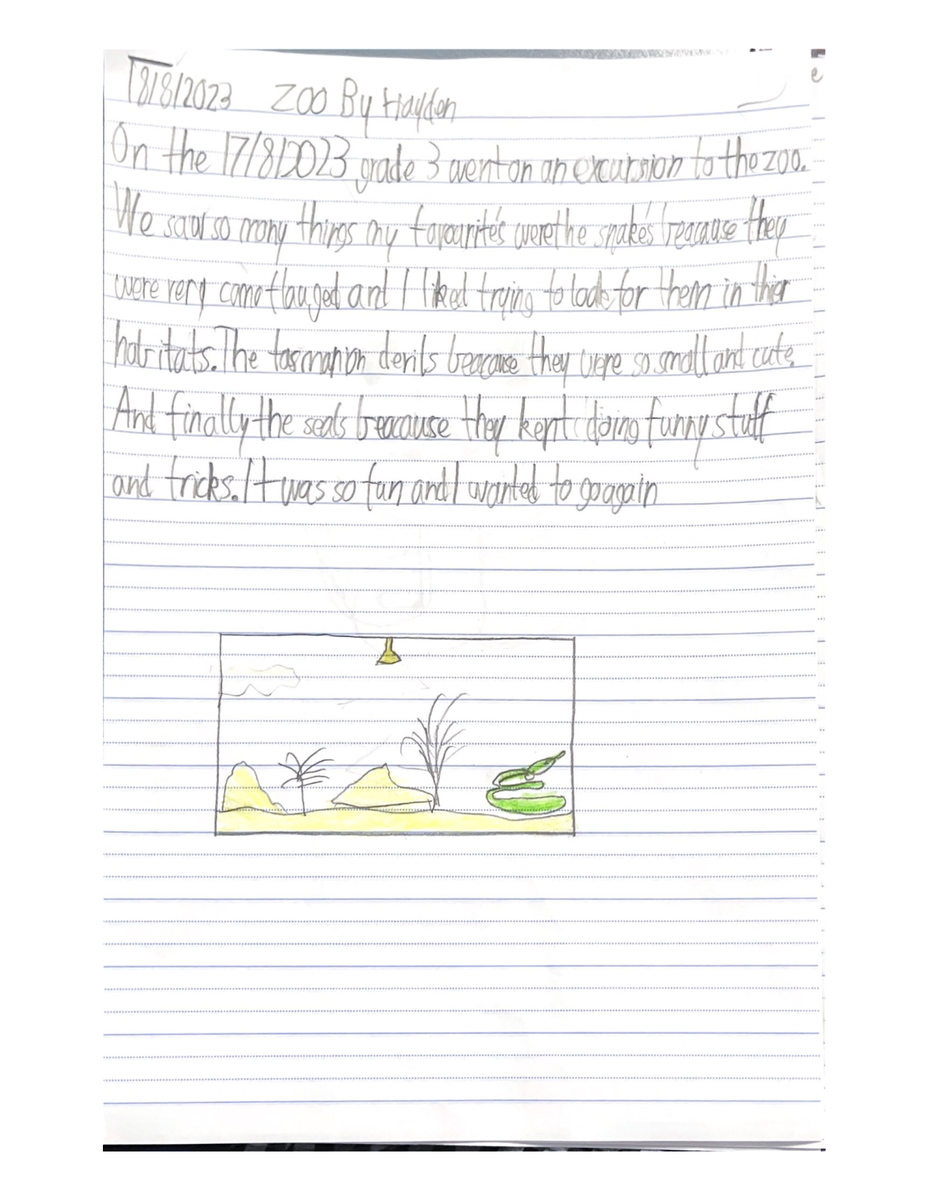 18/8/2023 Zoo By Hayden
On the 17/8/2023 grade 3 went on an excursion to the zoo.
We saw so many things my favourite's were the snake's beacause they
were very camoflauged and I liked trying to look for them in thier
habitats. The tasmanian devils beacause they were so small and cute.
And finally the seals beacause they kept doing funny stuff
and tricks. It was so fun and I wanted to go again